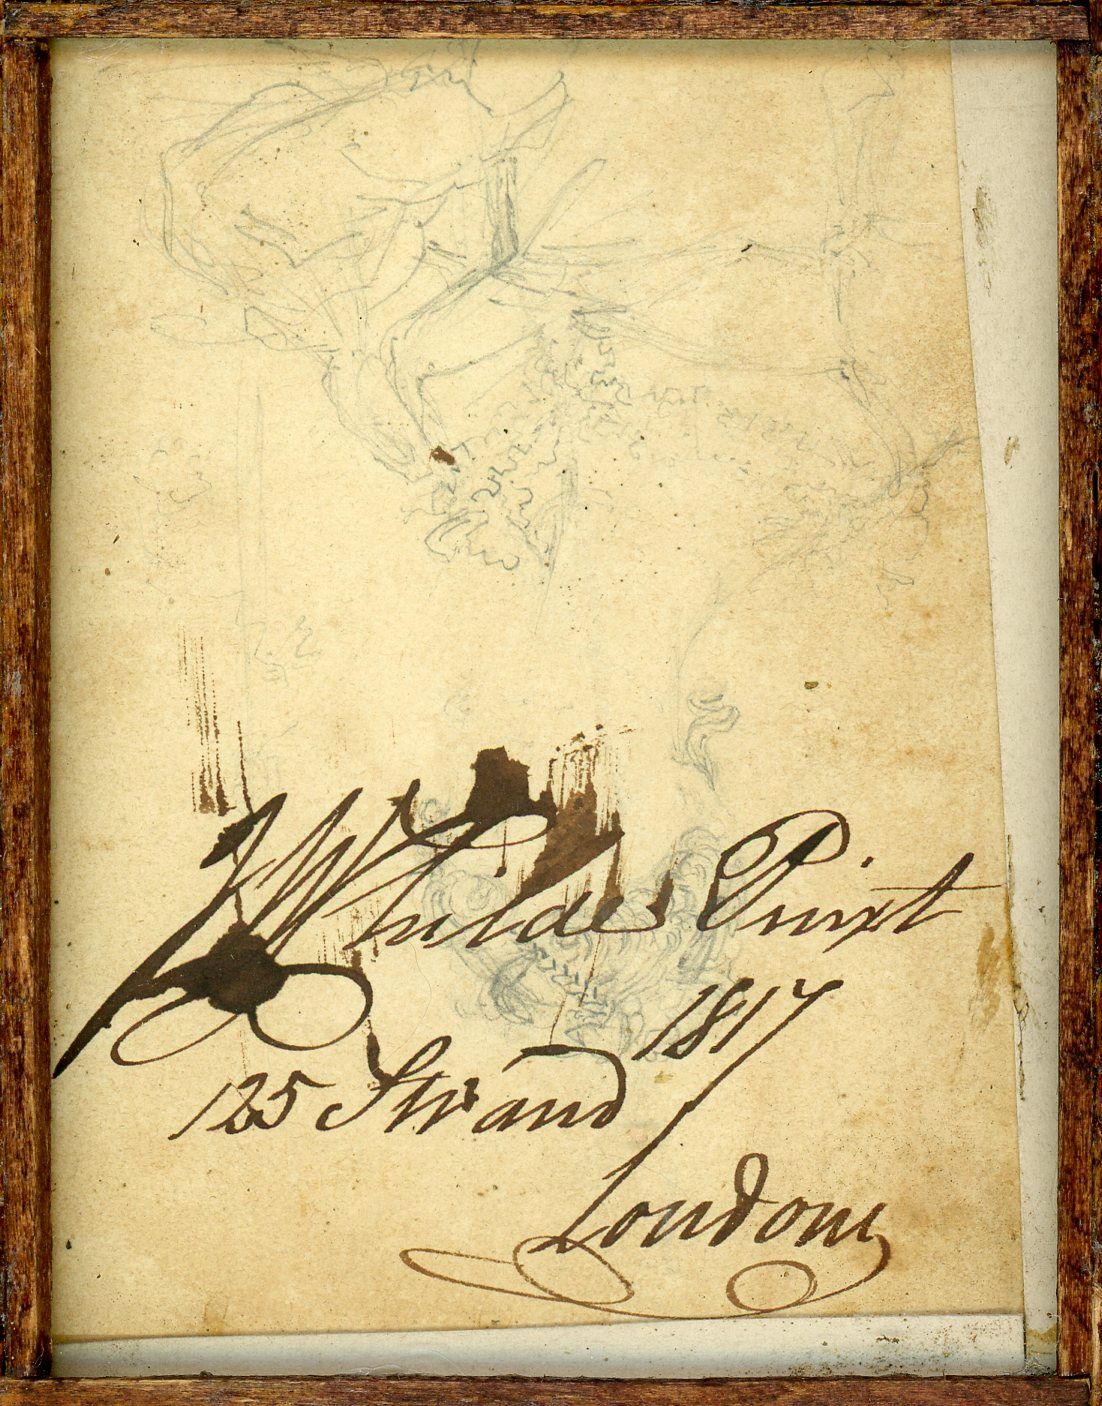 J Whilde Pinxt
1817
125 Strand
London